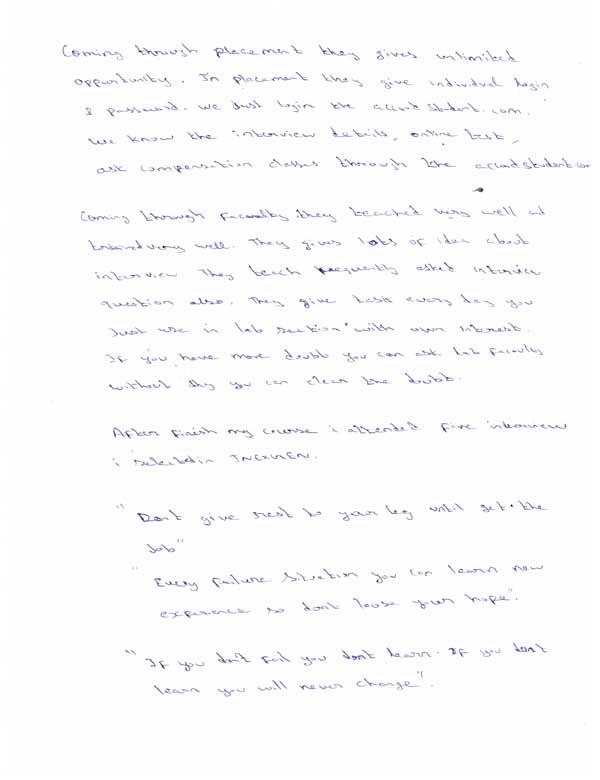 Coming through placement they gives unlimited
opportunity. In placement they give individual login
& password. we just login the accord student.com.
we know the interview details, online test,
ask compensation classes through the accordstudent.com
Coming through faculty, they teached very well ad
trained very well. They gives lots of idea about
interview They teach frequently asked interview
question also. They give task every day you
Just use in lab section with own interest.
If you have more doubt you can ask lab faculty
without shy you can clear the doubt.
After finish my course i attended five interview
i selected in
"Don't give rest to your leg until get the
Job"
"Every failure situation you can learn new
experience so don't loose your hope".
"If you don't fail you don't learn. If you don't
learn you will never change".